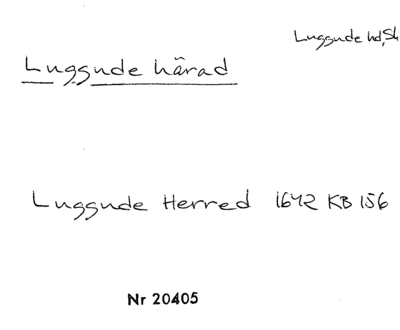 Luggude hd, Sk
Luggude härad
Luggude Herred 1642 KB 156
Nr 20405